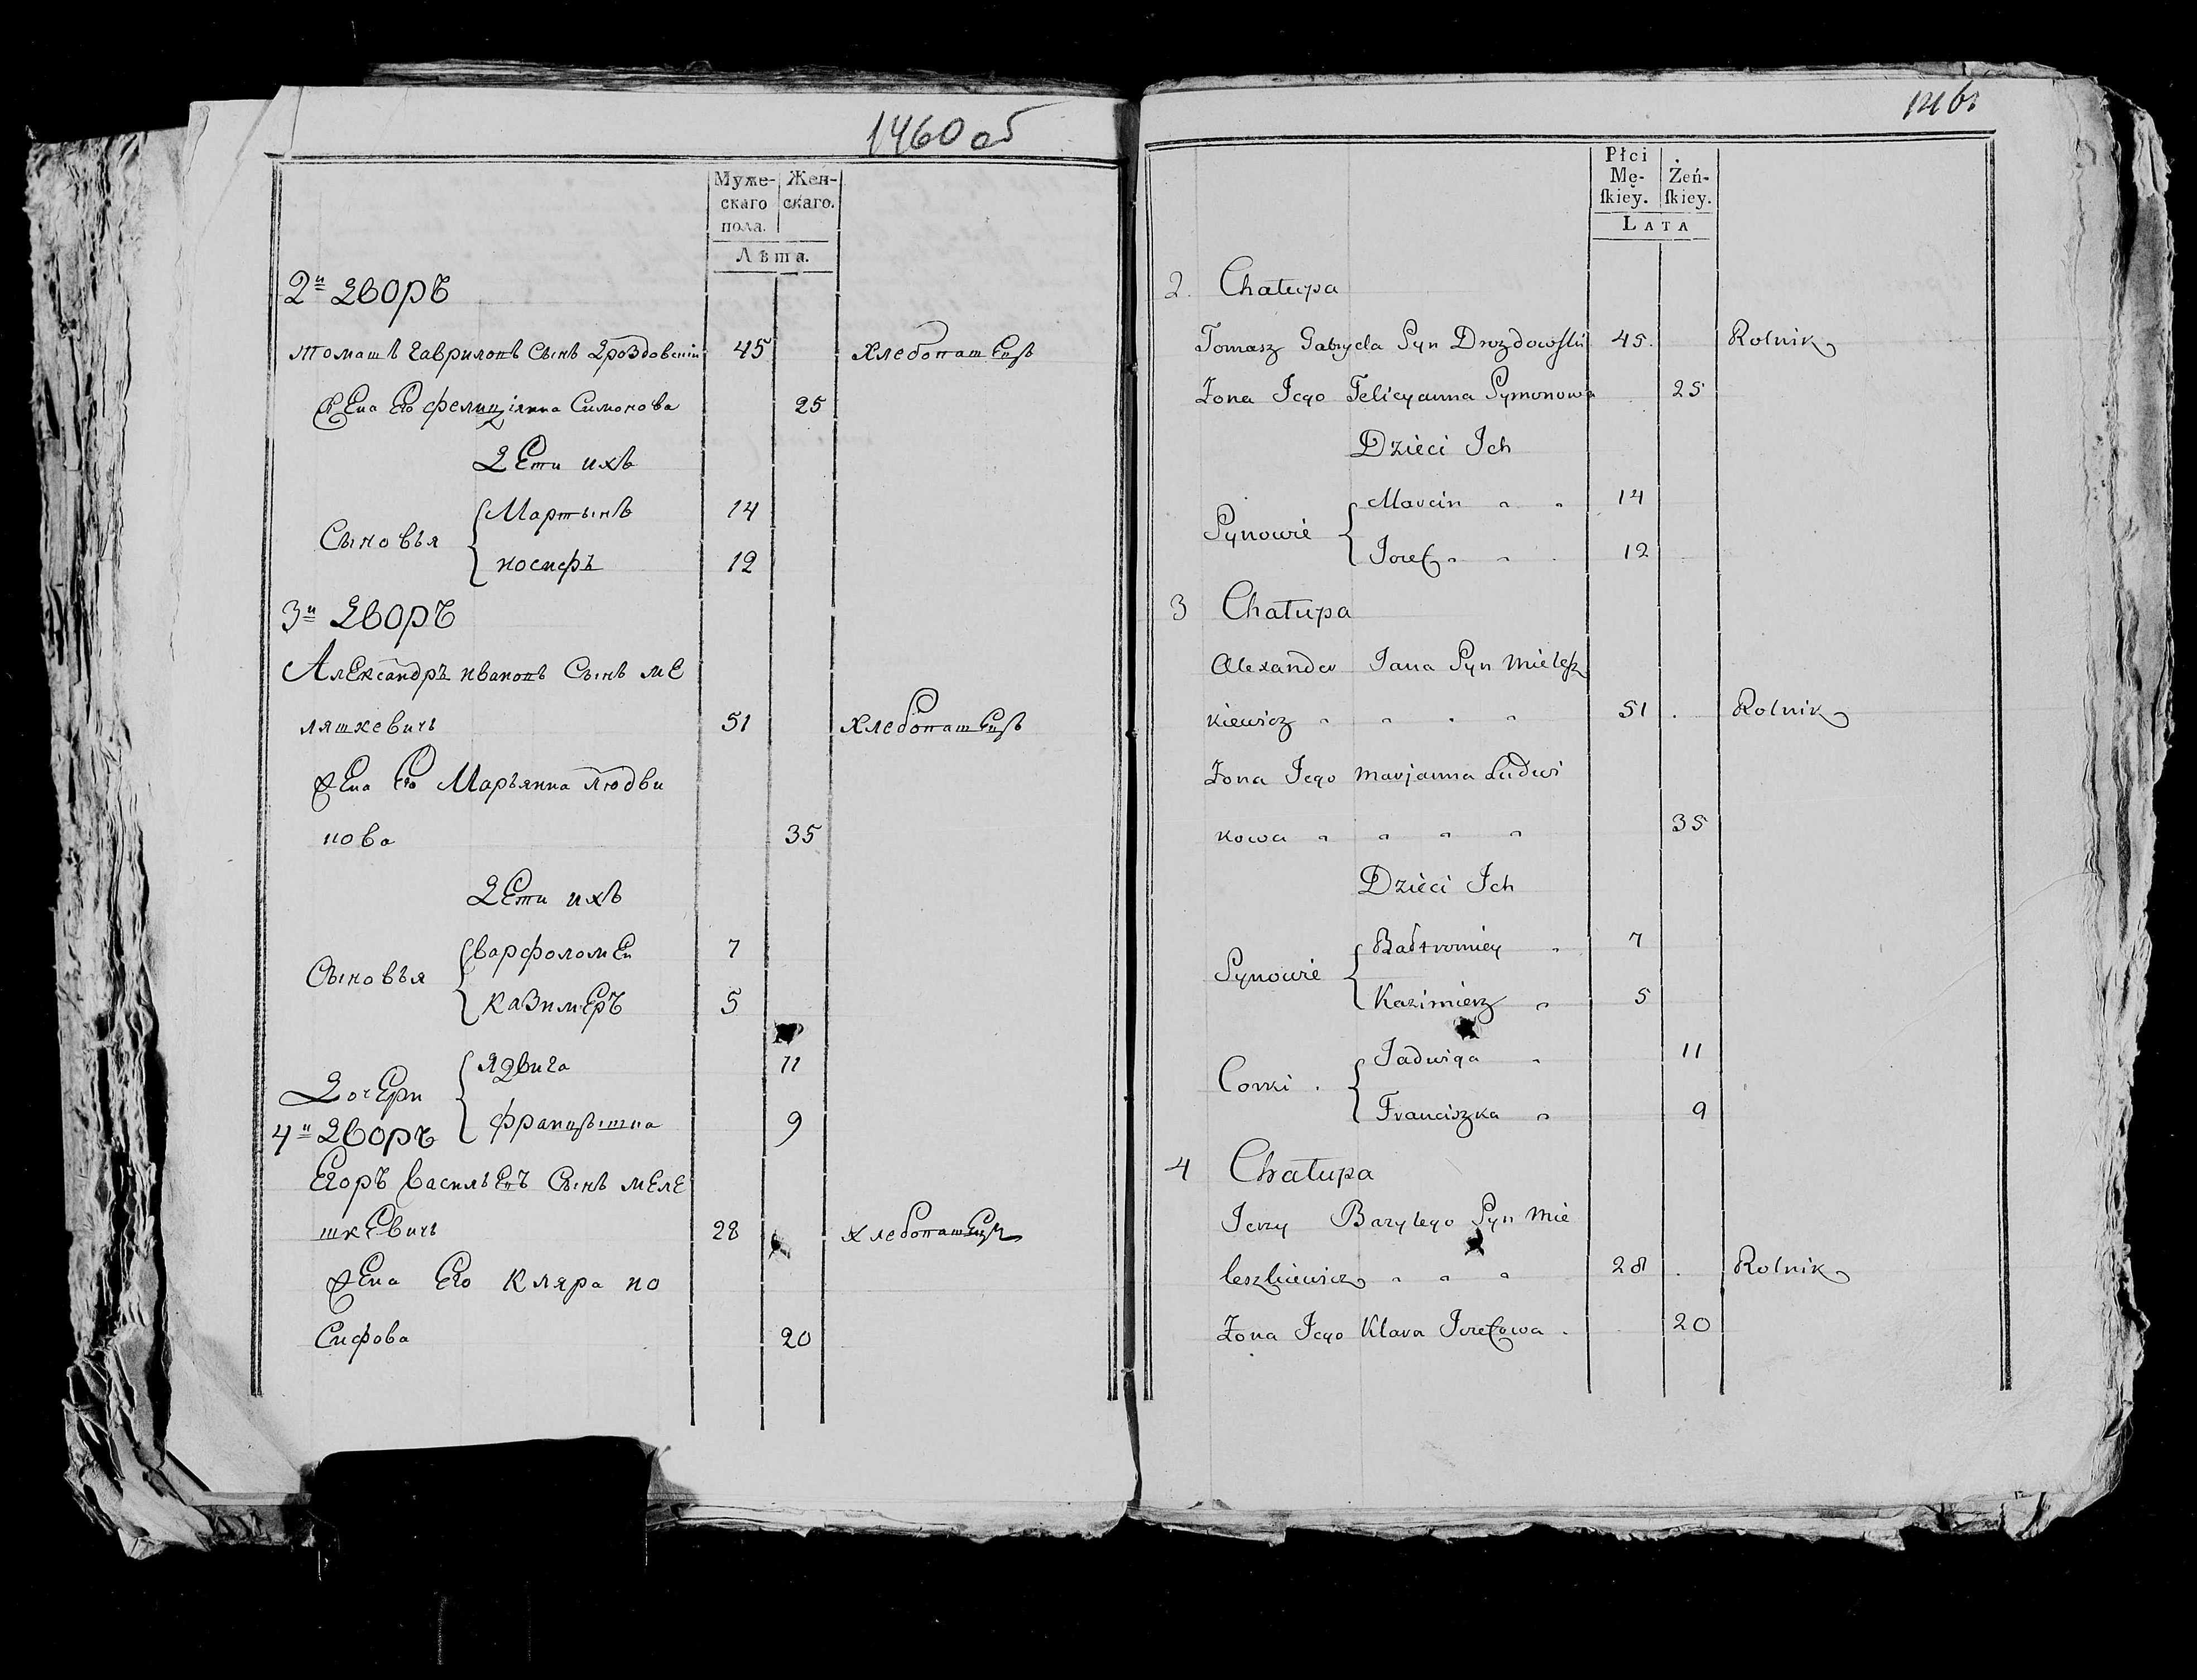 1460 об
Муже- Жен-
скаго скаго.
пола.
Лѣта.
2й Дворъ
Томашъ Гавриловъ Сынъ Дроздовскій 45 Хлебопашецъ
Жена Его Фелиціянна Симонова 25
Дети ихъ
Сыновья
Мартынъ 14
Иосифъ 12
3й Дворъ
Александръ Ивановъ Сынъ Ме
ляшкевичь 51 Хлебопашецъ
Жена Его Марьянна Людви
кова 35
Дети ихъ
Сыновья
Варфоломей 7
Казимеръ 5
Дочери
Ядвига 11
Францышка 9
4й Дворъ
Егоръ Васильевъ Сынъ Меле
шкевичь 28 Хлебопашецъ
Жена Его Кляра Ио
сифова 20
146.
Płci
Mę- Żeń-
ſkiey. ſkiey.
LATA
2. Chałupa
Tomasz Gabryela Syn Drozdowski 45. Rolnik
Żona Jego Felicyanna Symonowa 25
Dzieci Ich
Synowie
Marcin " " 14
Jozef " " 12
3 Chałupa
Alexander Jana Syn Mielesz
kiewicz " " " " 51 Rolnik
Żona Jego Marjanna Ludwi
kowa " " " " 35
Dzieci Ich
Synowie
Bałtromiey " 7
Kazimierz " 5
Corki
Jadwiga " 11
Franciszka " 9
4 Chałupa
Jerzy Bazylego Syn Mie
leszkiewicz " " " 28 Rolnik
Żona Jego Klara Jozefowa 20